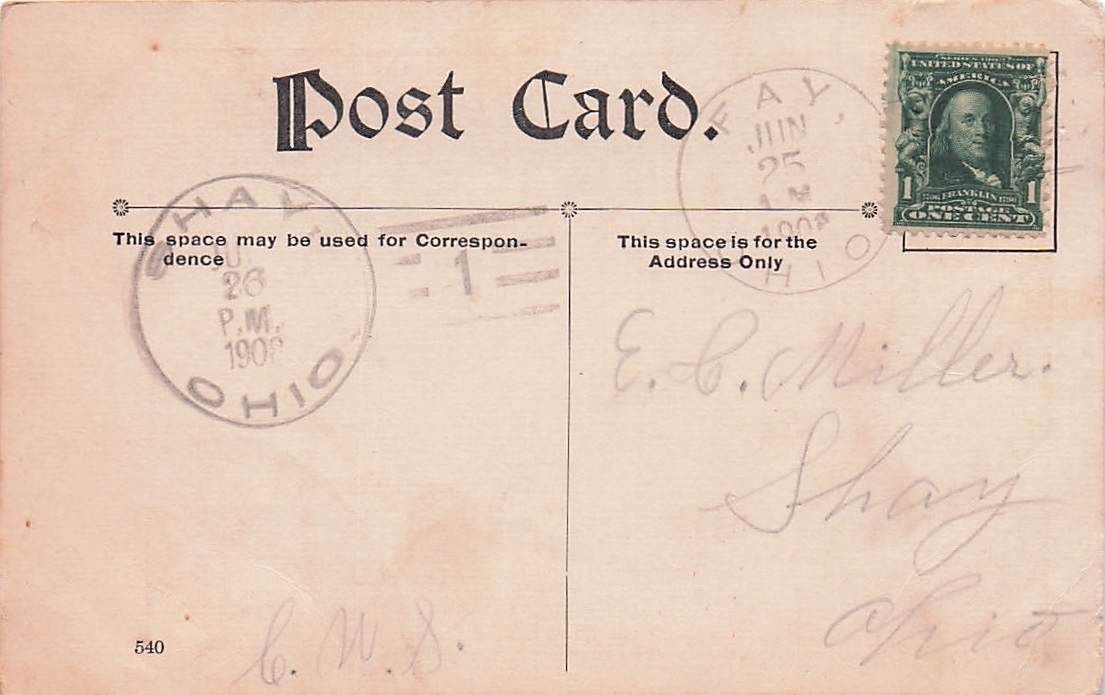 Post Card.
FAY,
JUN
25
1908
OHIO
UNITED STATES OF
AMERICA
1 FRANKLIN 1
POSTAGE
ONE CENT
SHAY,
26
P.M.
1908
OHIO.
1
This space may be used for Correspon-
dence
This space is for the
Address Only
E. C. Miller.
Shay
Ohio
C. W. S.
540